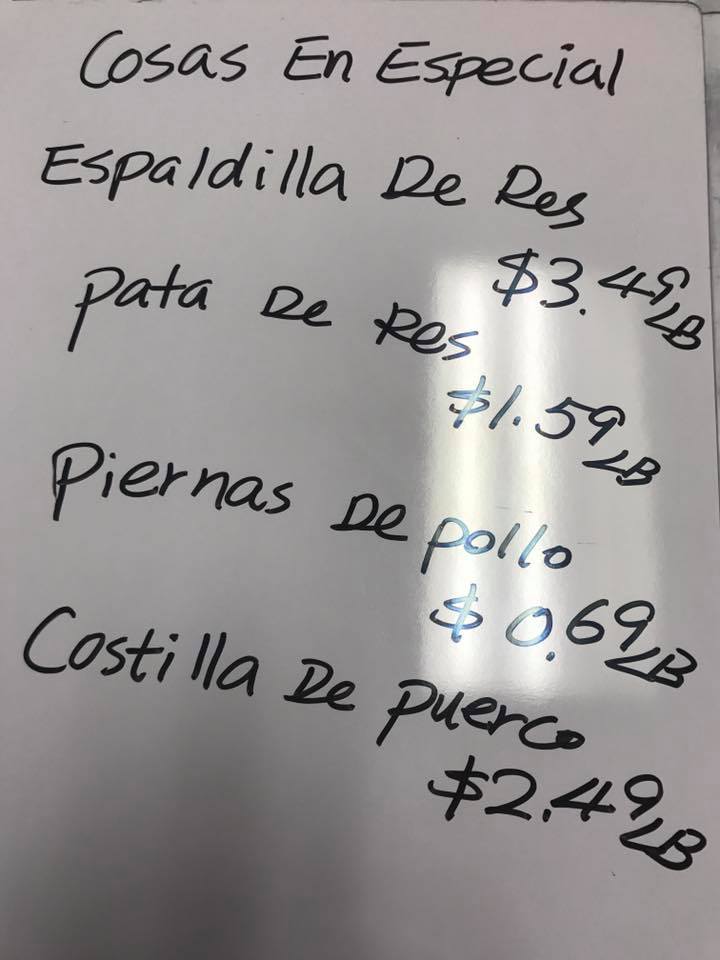 Cosas En Especial
Espaldilla De Res
$3.49 LB
Pata De Res
$1.59 LB
Piernas De pollo
$0.69 LB
Costilla De puerco
$2.49 LB